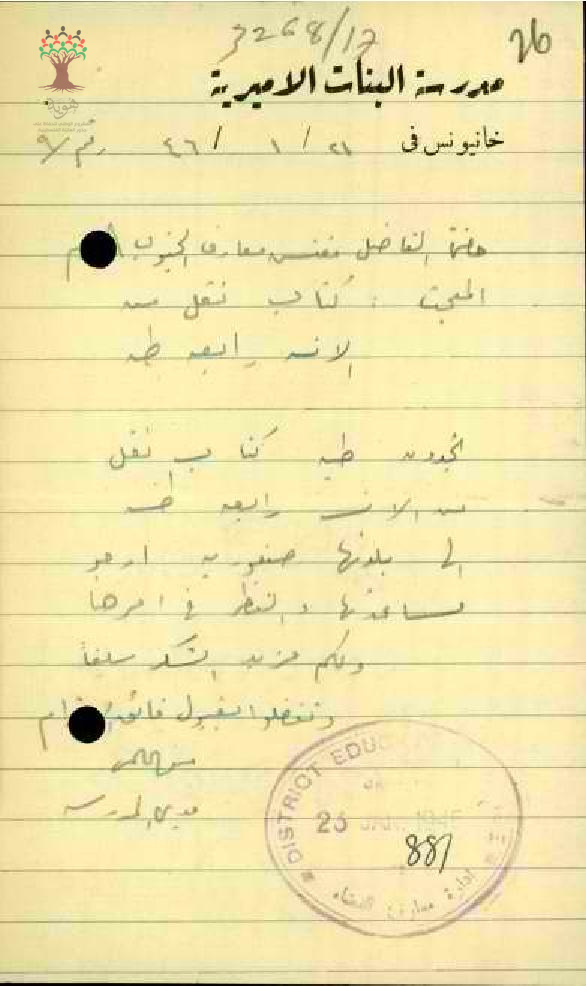 3268/17
26
هوية
مدرسة البنات الاميرية
خانيونس في ٢١ / ١ / ٤٦ رقم ٩/
حضرة الفاضل مفتش معارف الجنوب المحترم
المبحث : كتاب نقل من
الانسه رابعه طه
تجدون طيه كتاب نقل
من الانسه رابعه طه
الى بلدتها صفوريه ارجو
مساعدتها والنظر في امرها
ولكم مزيد الشكر سلفاً
وتفضلوا بقبول فائق احترام
مديرة المدرسه
DISTRICT EDUC
23 JAN 1946
881
ادارة معارف اللواء